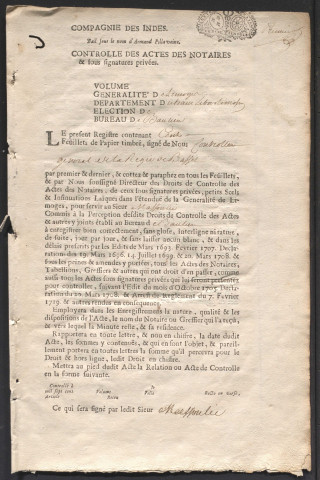 COMPAGNIE DES INDES.
Bail sous le nom d'Armand Pillavoine.
CONTROLLE DES ACTES DES NOTAIRES
& sous signatures privées.
VOLUME
GENERALITE' D e Limoges
DEPARTEMENT D
ELECTION D
BUREAU D
LE present Registre contenant
Feüillets de Papier timbré, signé de Nous Controlleur
general de la Regie
par premier & dernier, & cottez & paraphez en tous les Feüillets,
& par Nous soussigné Directeur des Droits de Controlle des
Actes des Notaires, de ceux sous signatures privées, petits Scels,
& Insinuations Laïques dans l'étenduë de la Generalité de Limoges, pour servir au Sieur
Commis à la Perception desdits Droits de Controlle des Actes
& autres y joints établi au Bureau d
à enregistrer bien correctement, sans glose, interligne ni rature,
de suite, jour par jour, & sans laisser aucun blanc, & dans les
délais prescrits par les Edit de Mars 1693. Fevrier 1707. Declarations des 19. Mars 1696. 14. Juillet 1699. & 20. Mars 1708. &
sous les peines & amendes y portées, tous les Actes des Notaires,
Tabellions, Greffiers & autres qui ont droit d'en passer, comme
aussi tous les Actes sous signatures privées qui lui seront presentez
pour controller, suivant l'Edit du mois d'Octobre 1705. Declaration du 20. Mars 1708. & Arrest de Reglement du 7. Fevrier
1719. & autres rendus en consequence.
Employera dans les Enregistremens la nature, qualité & les
dispositions de l'Acte, le nom du Notaire ou Greffier qui l'a reçû,
& vers lequel la Minute reste, & sa residence.
Rapportera en toute lettre, & non en chifre, la date dudit
Acte, les sommes y contenuës, & qui en font l'objet, & pareillement portera en toutes lettres la somme qu'il percevra pour le
Droit & hors ligne, ledit Droit en chifre.
Mettra au pied dudit Acte la Relation ou Acte de Controlle
en la forme suivante.
Ce qui sera signé par ledit Sieur